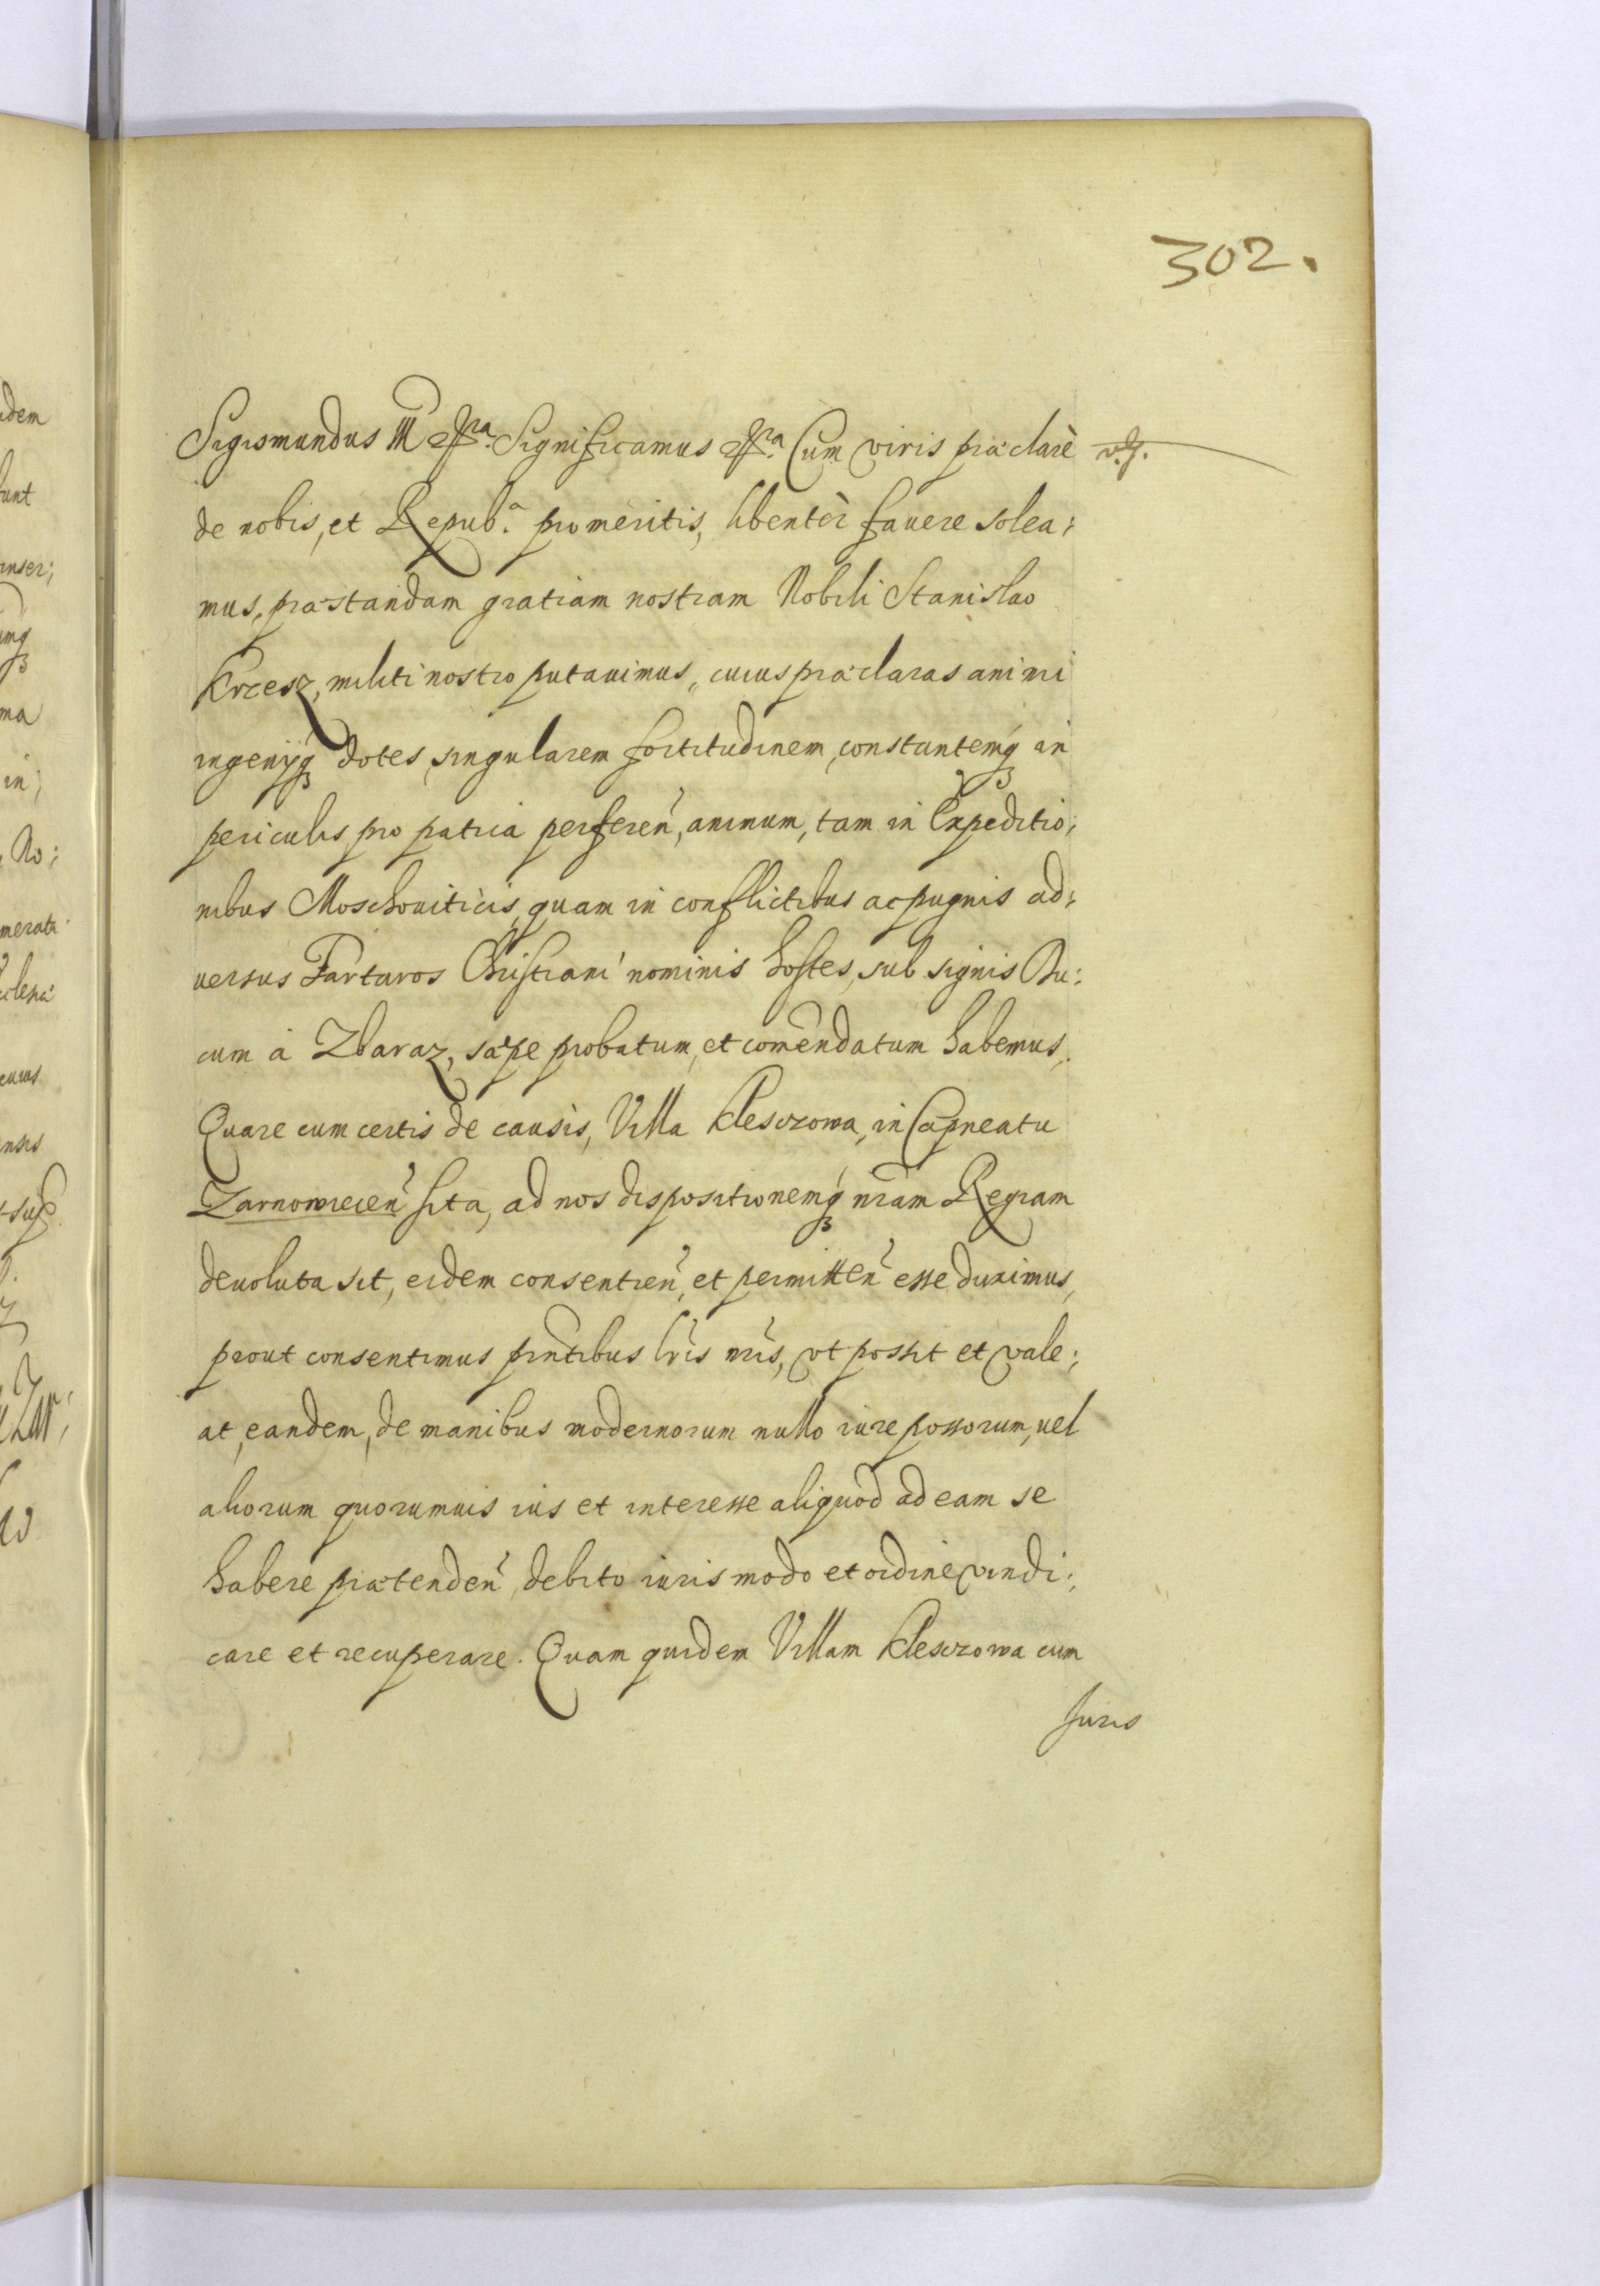 302.
Sigismundus III etca. Significamus etca. Cum viris præclarè
de nobis, et Repub.a promeritis, libentèr fauere solea:
mus, præstandam gratiam nostram Nobili Stanislao
Krzesz, militi nostro putauimus, cuius præclaras animi
ingenijq3 dotes, singularem fortitudinem, constantemq3 in
periculis pro patria perferen̄, animum, tam in Expeditio:
nibus Moschouiticis, quam in conflictibus ac pugnis ad:
versus Tartaros Christiani nominis hostes, sub signis Du:
cum à Zbaraz, sæpe probatum, et com̄endatum habemus.
Quare cum certis de causis, Villa Klesczowa, in Cap̄neatu
Zarnowiecien̄ sita, ad nos dispositionemq3 nr̄am Regiam
deuoluta sit, eidem consentien̄, et permitten̄ esse duximus,
prout consentimus pn̄tibus lr̄is nr̄is, vt possit et vale:
at, eandem, de manibus modernorum nullo iure possorum, vel
aliorum quorumuis ius et interesse aliquod ad eam se
habere prætenden̄ debito iuris modo et ordine vindi:
care et recuperare. Quam quidem Villam Klesczowa cum
Iuris